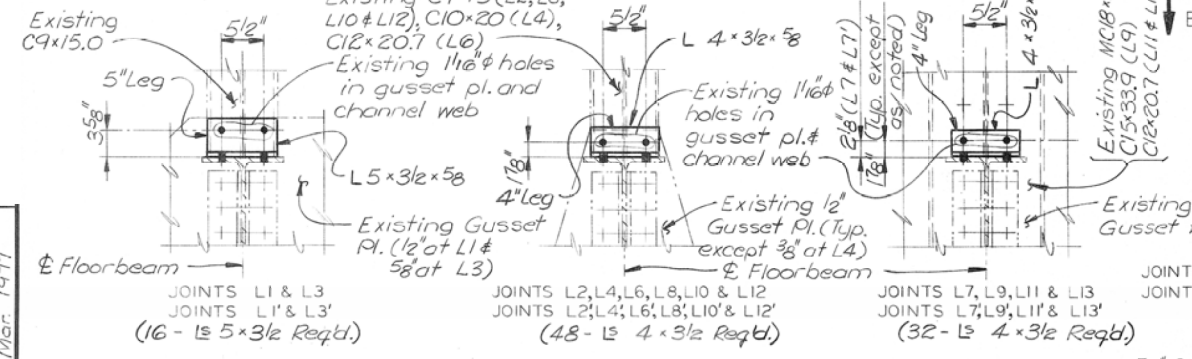 Existing
C9×15.0
5½"
5"Leg
3⅝"
L10 & L12), C10×20 (L4),
C12×20.7 (L6)
Existing 1 1/16"ϕ holes
in gusset pl. and
channel web
L 5×3½×⅝
Existing Gusset
Pl. (½" at L1 &
⅝" at L3)
℄ Floorbeam
JOINTS L1 & L3
JOINTS L1' & L3'
(16 - Ls 5×3½ Req'd.)
5½"
L 4×3½×⅝
Existing 1 1/16"ϕ
holes in
gusset pl. &
channel web
1⅞"
4"Leg
Existing ½"
Gusset Pl. (Typ.
except ⅜" at L4)
℄ Floorbeam
JOINTS L2, L4, L6, L8, L10 & L12
JOINTS L2', L4', L6', L8', L10' & L12'
(48 - Ls 4×3½ Req'd.)
2⅛" (L7 & L7')
1⅞" (Typ. except
as noted)
4"Leg
5½"
L 4×3½×
Existing MC18×
C15×33.9 (L9)
C12×20.7 (L11 & L1
Existing
Gusset
JOINTS L7, L9, L11 & L13
JOINTS L7', L9', L11' & L13'
(32 - Ls 4×3½ Req'd.)
JOINT
JOINT
Mar. 1977